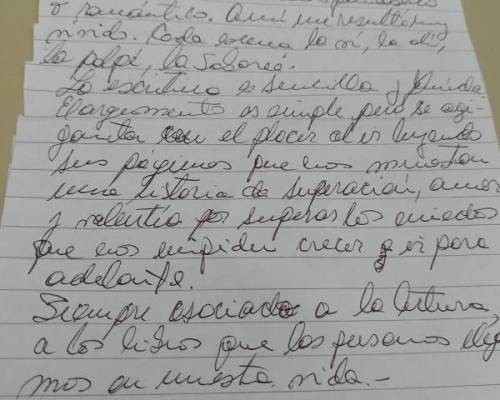 o romántico. A mí me resultó muy
vívido. Cada escena la vi, la olí,
la palpé, la saboreé.
La escritura es sencilla y fluida
El argumento es simple pero se agi-
ganta con el placer de ir leyendo
sus páginas que nos muestran
una historia de superación, amor
y valentía por superar los miedos
que nos impiden crecer e ir para
adelante.
Siempre asociado a la lectura,
a los libros que las personas elegi
mos en nuestra vida.-